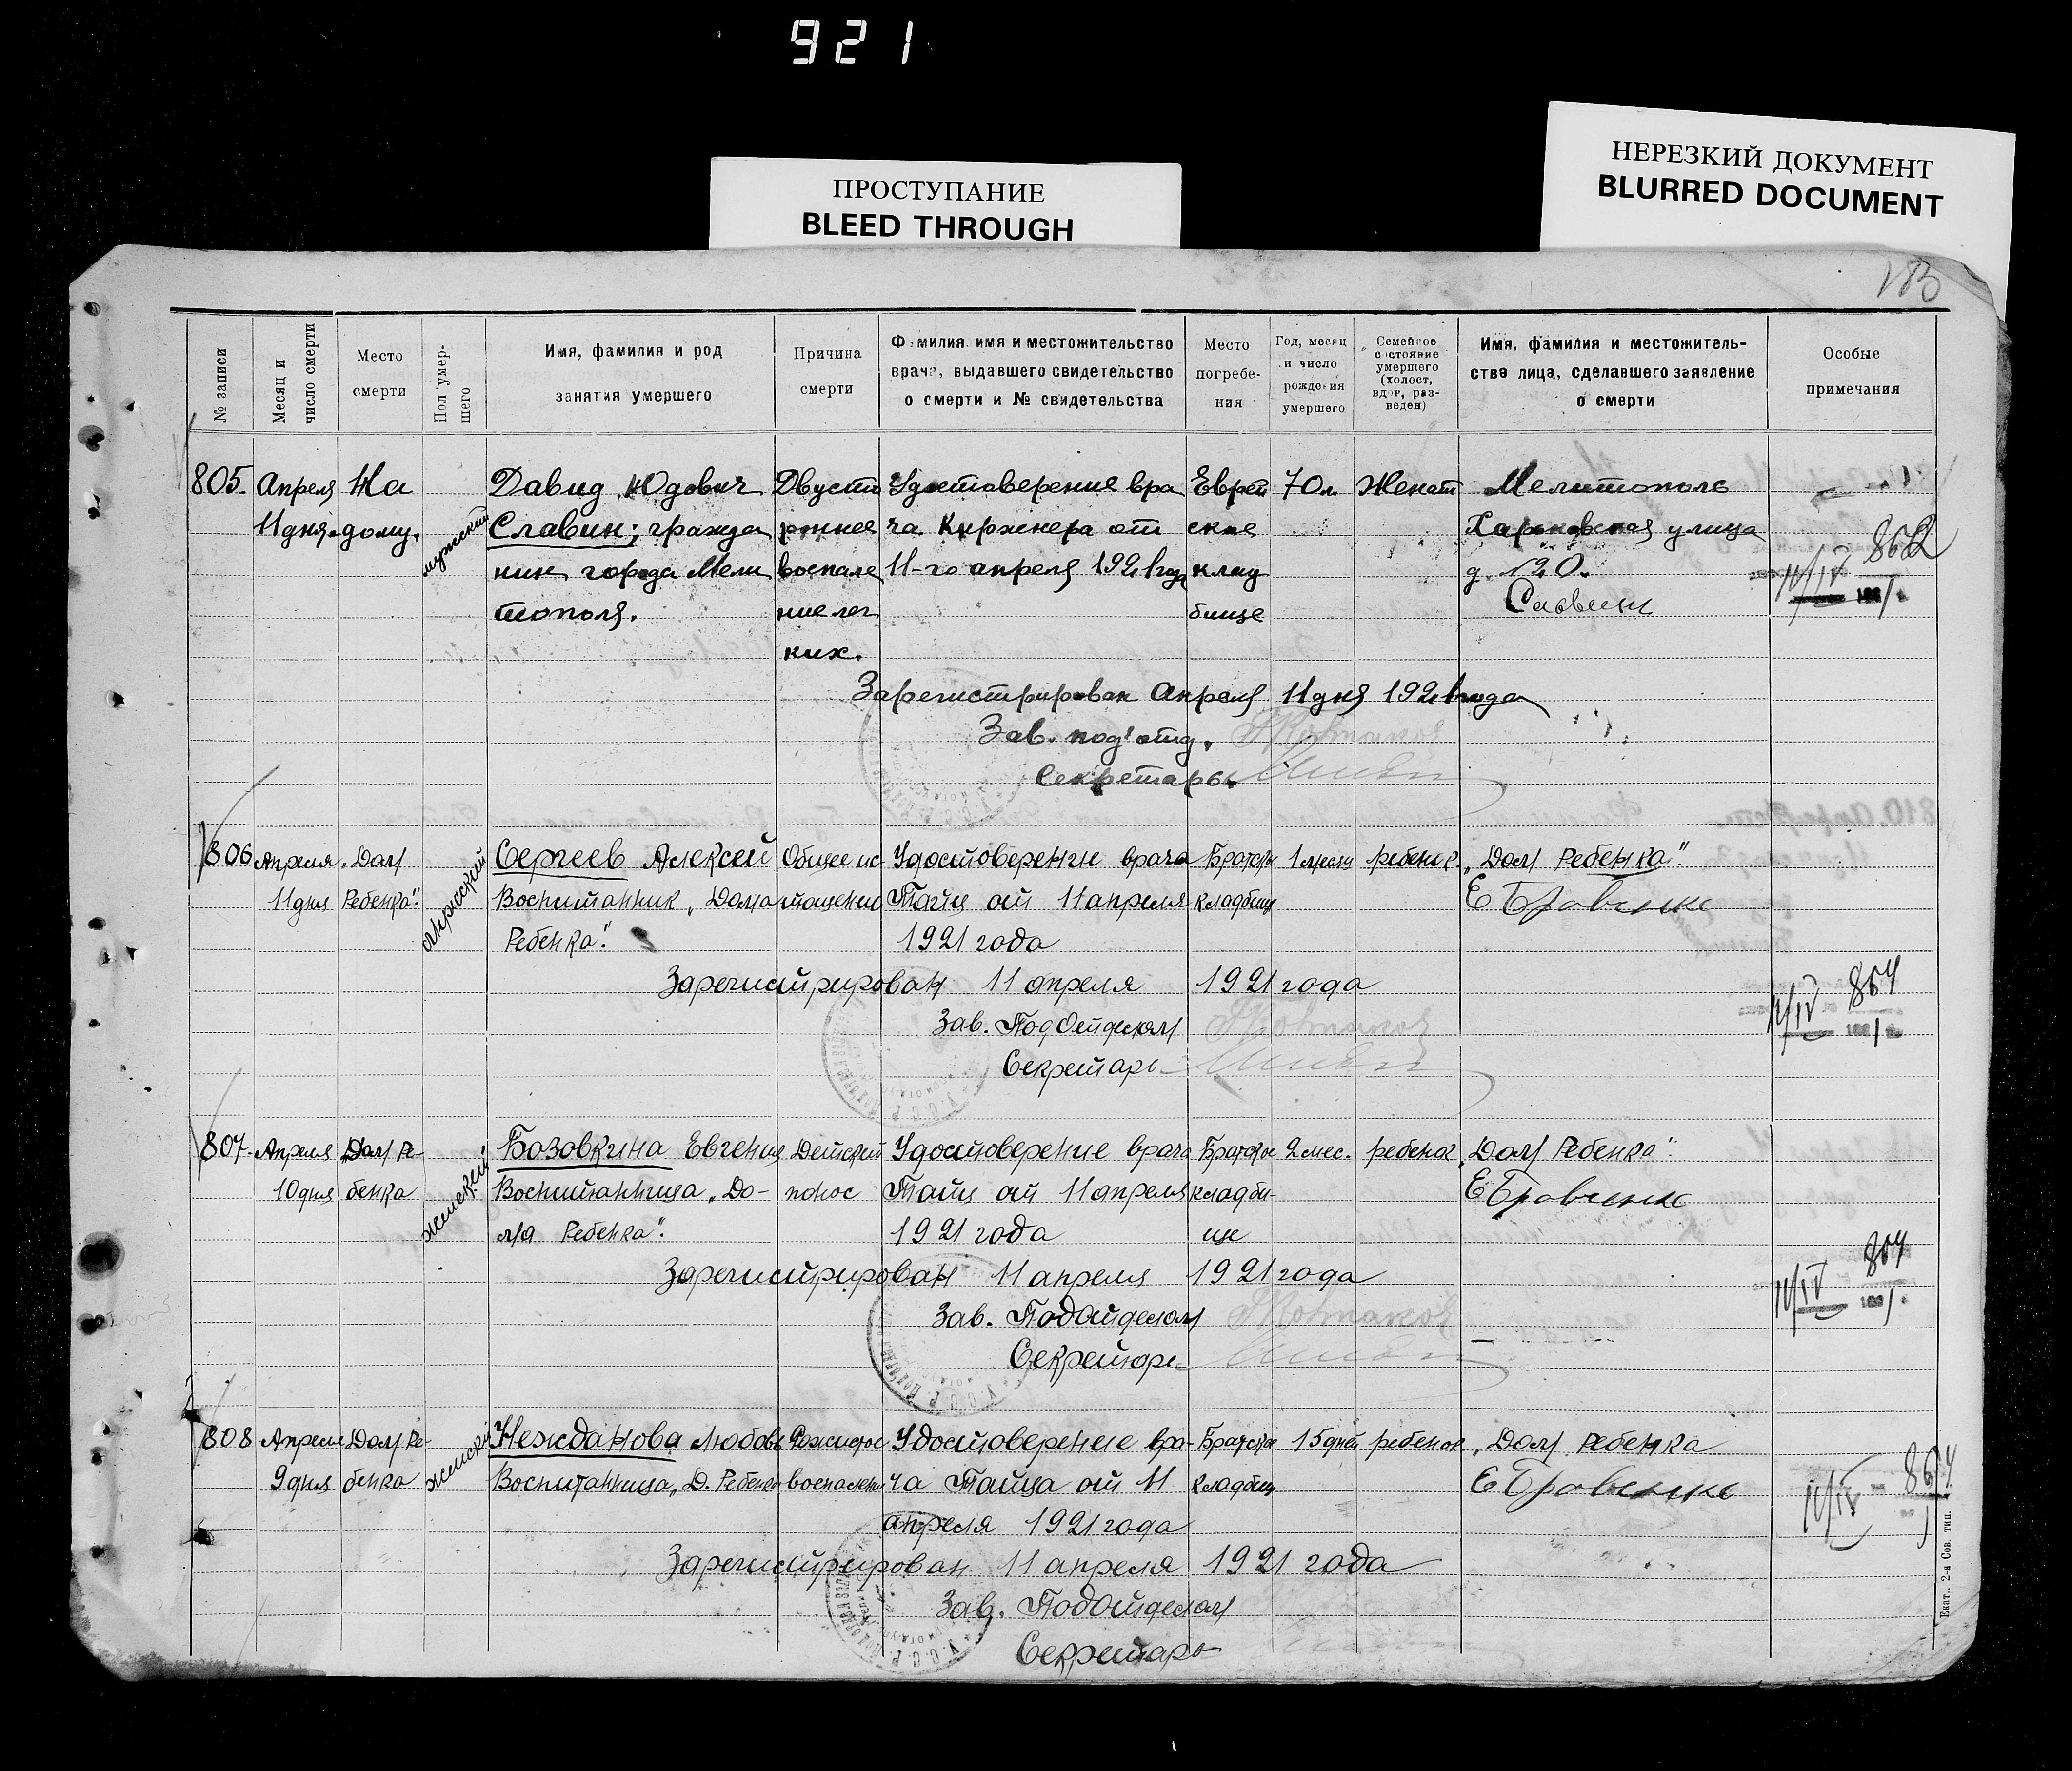 921
НЕРЕЗКИЙ ДОКУМЕНТ
BLURRED DOCUMENT
ПРОСТУПАНИЕ
BLEED THROUGH
183
№ записи
Месяц и число смерти
Место смерти
Пол умершего
Имя, фамилия и род занятия умершего
Причина смерти
Фамилия имя и местожительство врача, выдавшего свидетельство о смерти и № свидетельства
Место погребения
Год, месяц и число рождения умершего
Семейное состояние умершего (холост, вдов, разведен)
Имя, фамилия и местожительство лица, сделавшего заявление о смерти
Особые примечания
805. Апреля На Давид Юдович Двусто Удостоверение вра Еврей 70 л. Женат Мелитополь
11 дня. дому. мужский Славин; гражда роннее ча Киржнера от ское Харьковская улица
нин города Мели воспале 11-го апреля 1921 год клад д. 120.
тополя. ние лег бище
ких.
11/IV 862
Зарегистрирован Апреля 11 дня 1921 года
Зав. под'отд.
Секретарь
806 Апреля „Дом Сергеев Алексей Общее ис Удостоверение врача Братск 1 месяц ребенк. „Дом Ребенка"
11 дня Ребенка". мужский Воспитанник „Дома тощение Тайц от 11 апреля кладбищ Е Бровенко
Ребенка". 1921 года
Зарегистрирован 11 апреля 1921 года
11/IV 864
Зав. Подотделом
Секретарь
807. Апреля „Дом Ре- Бозовкина Евгения Детский Удостоверение врача Братское 2 мес. ребенок „Дом Ребенка".
10 дня бенка женский Воспитанница „До- понос Тайц от 11 апреля кладби- Е Бровенко
ма Ребенка". 1921 года ще
Зарегистрирован 11 апреля 1921 года
11/IV 864
Зав. Подотделом
Секретарь
808 Апреля Дом Ре- Нежданова Любовь Удостоверение вра- Братско 15 дней ребенок „Дом Ребенка
9 дня бенка женский Воспитанница „Д. Ребенка воспалени ча Тайца от 11 кладбищ Е Бровенко
апреля 1921 года
11/IV - 864
Зарегистрирован 11 апреля 1921 года
Зав. Подотделом
Секретарь
Екат.. 2-я Сов. тип.